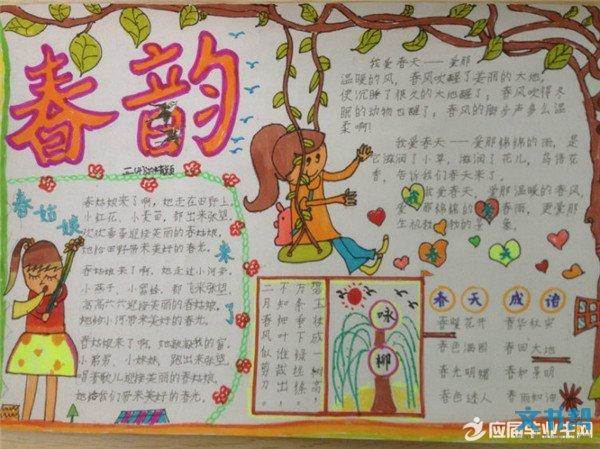 春韵
春姑娘来了
春姑娘来了啊，她走在田野上。
小红花、小麦苗，都出来张望。
她给田野带来美好的春光。
春姑娘来了啊，她走过小河旁。
小燕子、小蜜蜂，都飞来张望。
高高兴兴迎接美丽的春姑娘。
她给小河带来美好的春光。
小弟弟、小妹妹，跑出来张望。
她给我们带来美好的春光。
我爱春天——爱那
温暖的风，春风吹醒了美丽的大地，
使沉睡了很久的大地醒了；春风吹得冬
眠的动物也醒了；春风的脚步声多么温
柔啊！
我爱春天——爱那绵绵的雨，是
它滋润了小草，滋润了花儿，鸟语花
香，告诉我们春天来了。
我爱春天，爱那温暖的春风，
爱那绵绵的春雨，更爱那
生机勃勃的景象。
咏柳
碧玉妆成一树高
万条垂下绿丝绦
不知细叶谁裁出
二月春风似剪刀
春天成语
春暖花开 春华秋实
春色满园 春回大地
春光明媚 春和景明
春色迷人 春雨如油
应届毕业生网